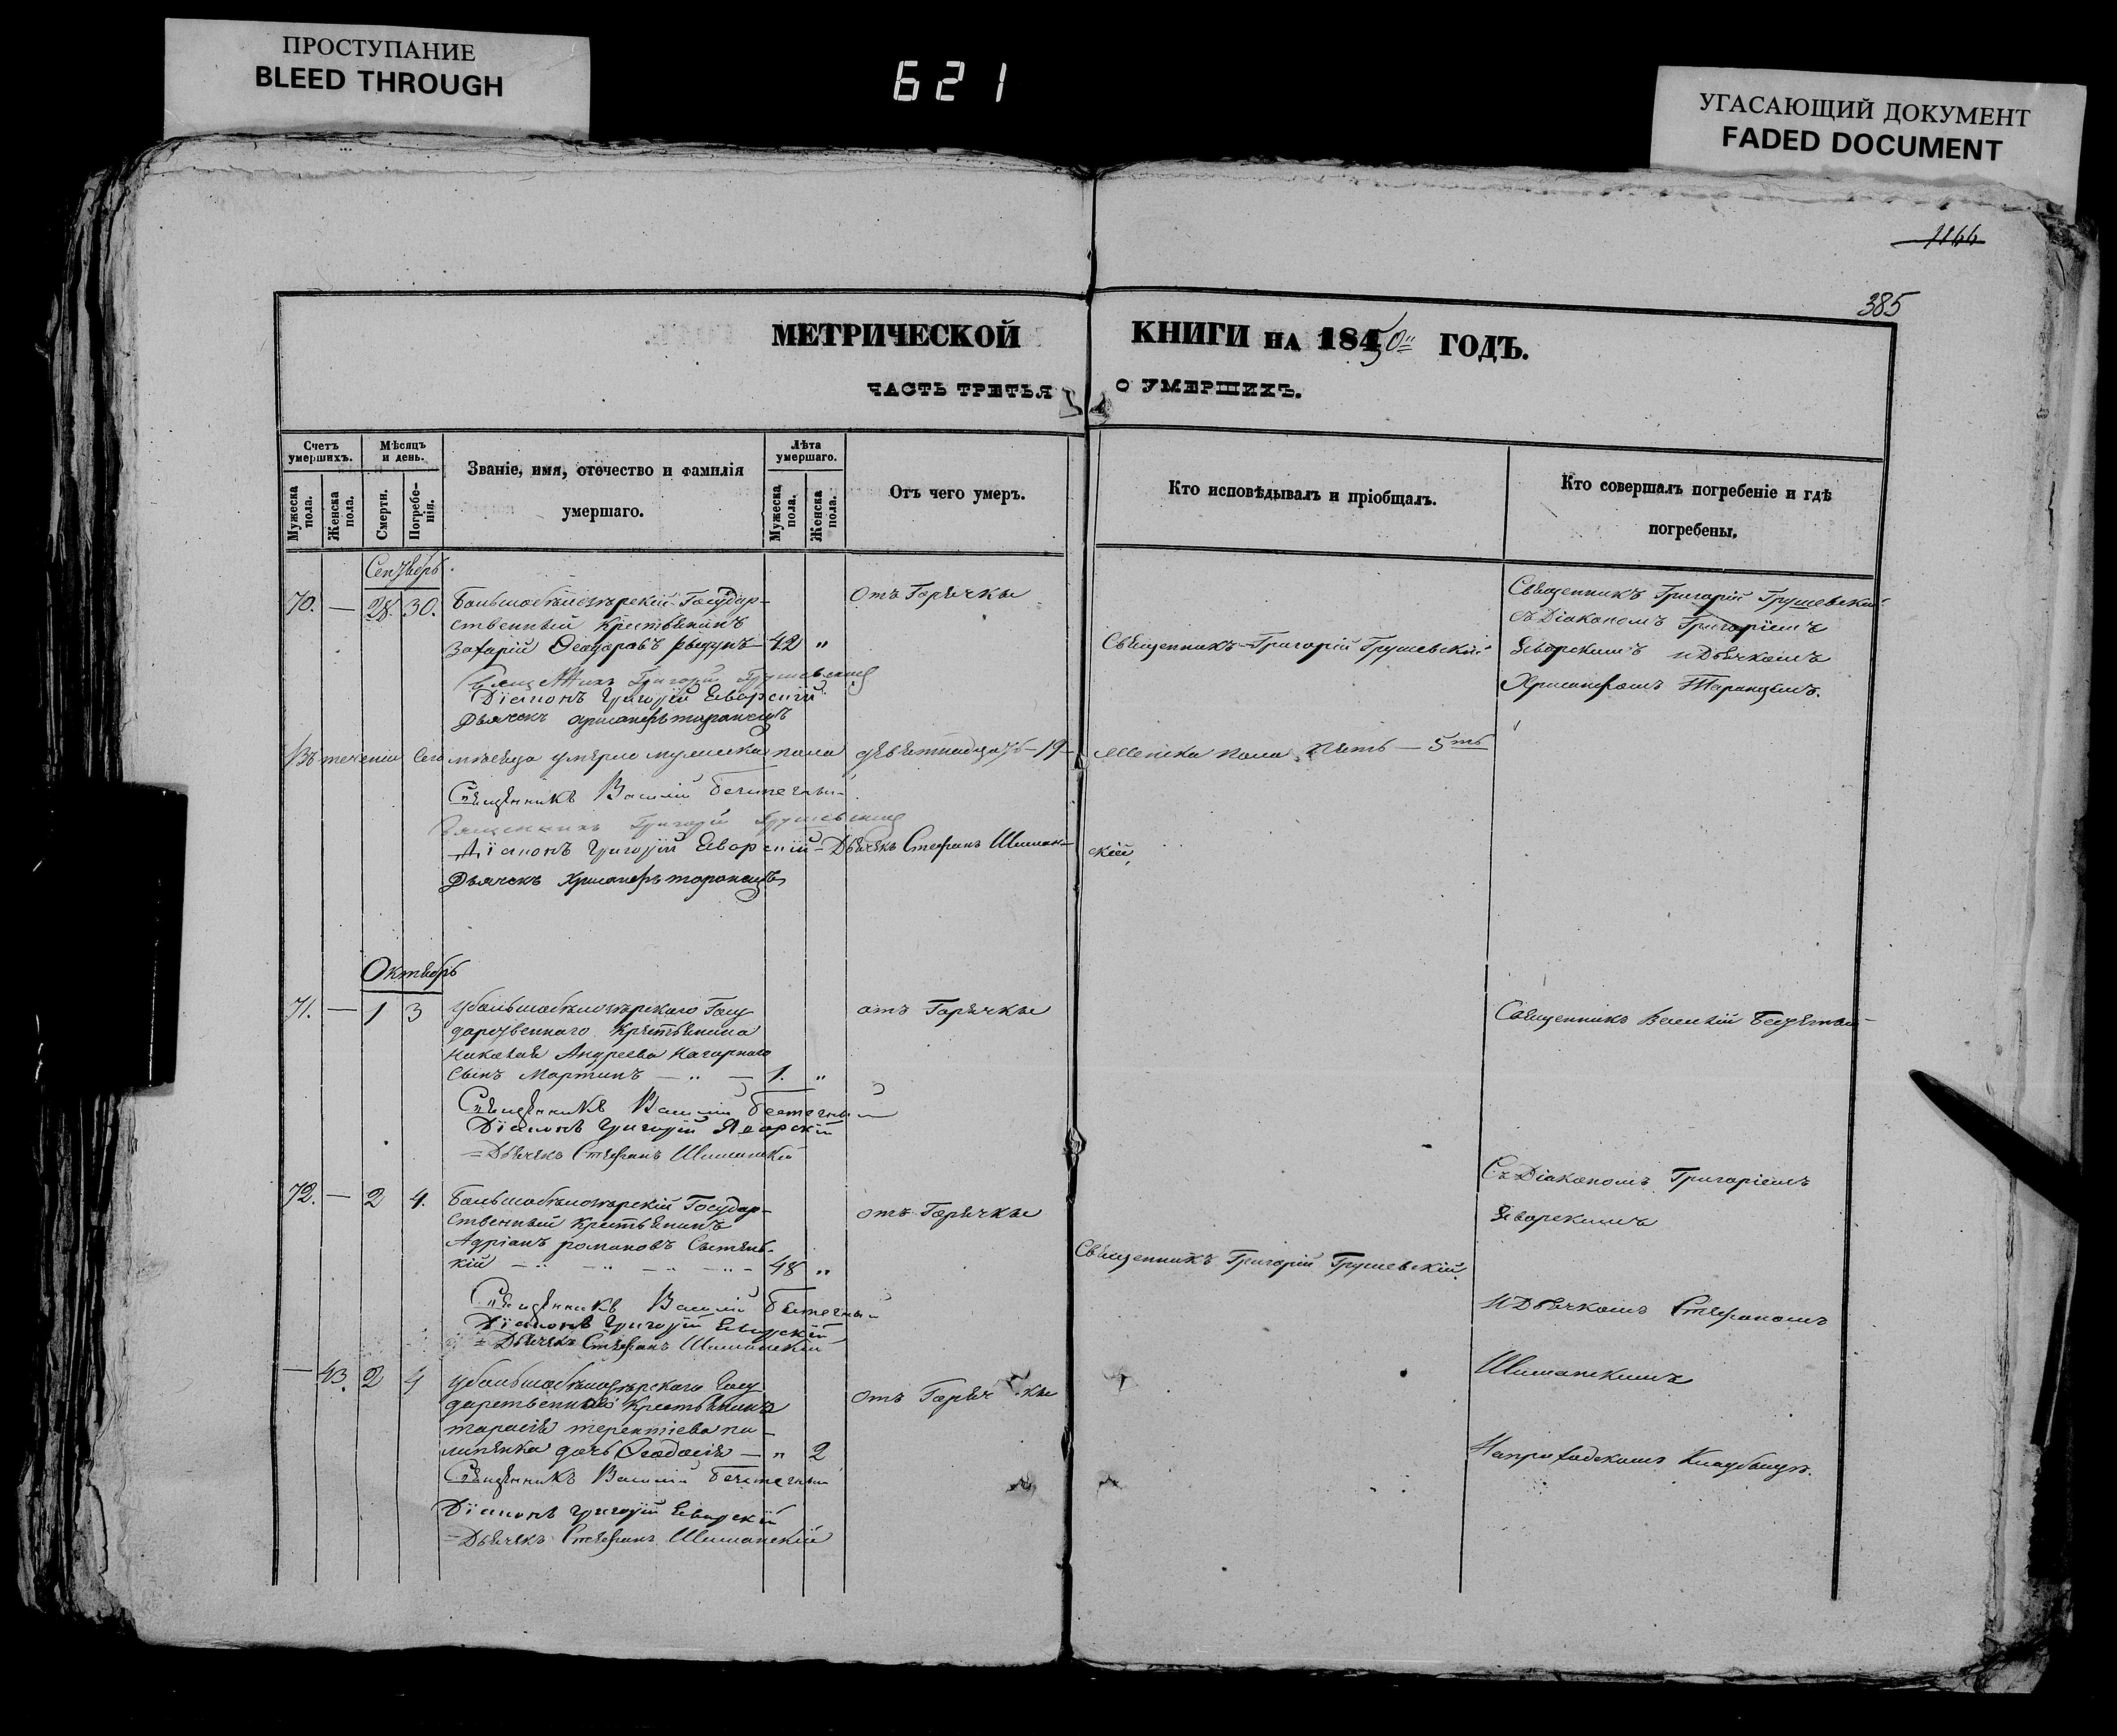 ПРОСТУПАНИЕ
BLEED THROUGH
621
УГАСАЮЩИЙ ДОКУМЕНТ
FADED DOCUMENT
1166
385
МЕТРИЧЕСКОЙ КНИГИ НА 1850 ГОДЪ.
ЧАСТЬ ТРЕТЬЯ О УМЕРШИХЪ.
Счетъ умершихъ.
Мужеска пола.
Женска пола.
Мѣсяцъ и день.
Смерти.
Погребенія.
Званіе, имя, отечество и фамилія
умершаго.
Лѣта умершаго.
Мужеска пола.
Женска пола.
Отъ чего умеръ.
Кто исповѣдывалъ и пріобщалъ.
Кто совершалъ погребеніе и гдѣ
погребены.
Сентябрь.
70. — 28. 30. Большобѣлозѣрскій Государ-
ственный Крестьянинъ
Захарій Ѳеодоровъ 42 "
отъ Горячки
Священникъ Григорій Грушевскій
Священникъ Григорій Грушевскій
съ Діакономъ Григоріемъ
Яворскимъ и Дьячкомъ
Хрисанфомъ Таранцемъ.
Священникъ Григорій Грушевскій
Діаконъ Григорій Яворскій
Дьячекъ Хрисанфъ таранецъ
Въ теченіи сего мѣсяца умерло мужеска пола девятнадцать — 19 — женска пола пять — 5ть
Священникъ Василій
Священникъ Григорій Грушевскій
Діаконъ Григорій Яворскій = Дьячекъ Стефанъ Шиманскій
Дьячекъ Хрисанфъ таранецъ
Октябрь
71. — 1 3 у большобѣлозѣрскаго Госу
дарственнаго Крестьянина
Николая Андреева Нагорнаго
сынъ Мартинъ — " — 1. "
отъ Горячки
Священникъ Василій
Священникъ Василій
Діаконъ Григорій Яворскій
= Дьячекъ Стефанъ Шиманскій
72. — 2 4. Большобѣлозѣрскій Государ-
ственный Крестьянинъ
Адріанъ романовъ
кій 48 "
отъ Горячки
Священникъ Григорій Грушевскій.
Съ Діакономъ Григоріемъ
Яворскимъ
и Дьячкомъ Стефаномъ
Шиманскимъ
На приходскомъ Кладбищѣ.
Священникъ Василій
Діаконъ Григорій Яворскій
= Дьячекъ Стефанъ Шиманскій
— 43. 2 4 у большобѣлозѣрскаго Госу
дарственнаго Крестьянина
тарасія терентіева
дочь Ѳеодосія — " 2
отъ Горячки
Священникъ Василій
Діаконъ Григорій Яворскій
= Дьячекъ Стефанъ Шиманскій